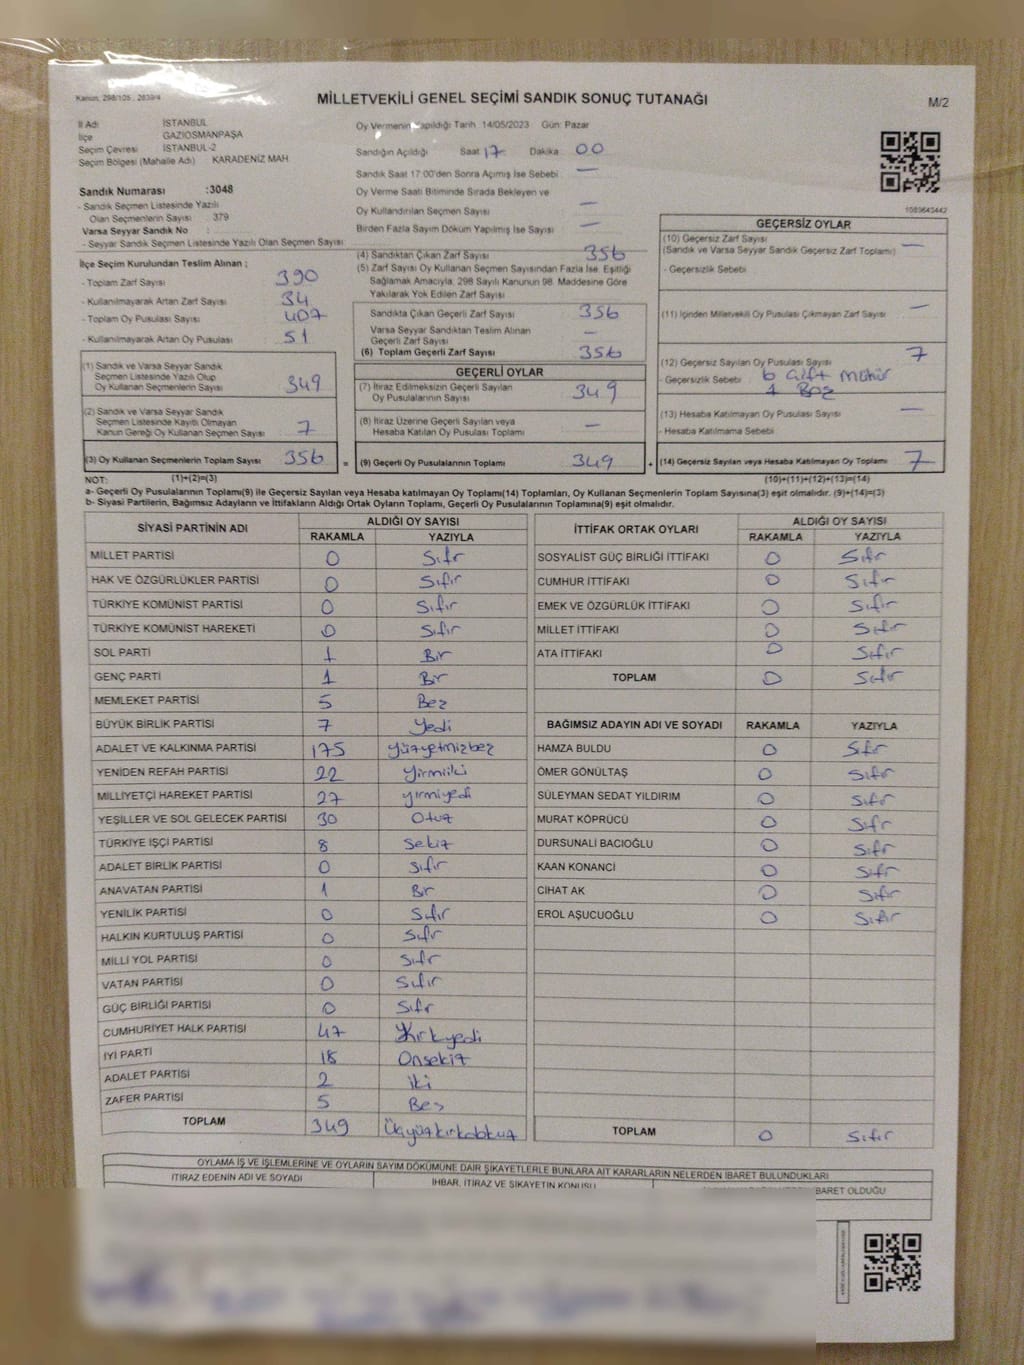 Kanun, 298/105, 2839/4
MİLLETVEKİLİ GENEL SEÇİMİ SANDIK SONUÇ TUTANAĞI
M/2
İl Adı İSTANBUL
İlçe GAZİOSMANPAŞA
Seçim Çevresi İSTANBUL-2
Seçim Bölgesi (Mahalle Adı) KARADENİZ MAH.
Oy Vermenin Yapıldığı Tarih 14/05/2023 Gün: Pazar
Sandığın Açıldığı Saat 17 Dakika 00
Sandık Saat 17:00'den Sonra Açımış İse Sebebi —
Oy Verme Saati Bitiminde Sırada Bekleyen ve
Oy Kullandırılan Seçmen Sayısı —
Birden Fazla Sayım Döküm Yapılmış İse Sayısı —
1089643442
Sandık Numarası :3048
- Sandık Seçmen Listesinde Yazılı
Olan Seçmenlerin Sayısı 379
Varsa Seyyar Sandık No :
- Seyyar Sandık Seçmen Listesinde Yazılı Olan Seçmen Sayısı:
İlçe Seçim Kurulundan Teslim Alınan ;
- Toplam Zarf Sayısı 390
- Kullanılmayarak Artan Zarf Sayısı 34
- Toplam Oy Pusulası Sayısı 407
- Kullanılmayarak Artan Oy Pusulası 51
(1) Sandık ve Varsa Seyyar Sandık
Seçmen Listesinde Yazılı Olup
Oy Kullanan Seçmenlerin Sayısı 349
(2) Sandık ve Varsa Seyyar Sandık
Seçmen Listesinde Kayıtlı Olmayan
Kanun Gereği Oy Kullanan Seçmen Sayısı 7
(3) Oy Kullanan Seçmenlerin Toplam Sayısı 356 =
(4) Sandıktan Çıkan Zarf Sayısı 356
(5) Zarf Sayısı Oy Kullanan Seçmen Sayısından Fazla İse, Eşitliği
Sağlamak Amacıyla, 298 Sayılı Kanunun 98. Maddesine Göre
Yakılarak Yok Edilen Zarf Sayısı
Sandıkta Çıkan Geçerli Zarf Sayısı 356
Varsa Seyyar Sandıktan Teslim Alınan
Geçerli Zarf Sayısı —
(6) Toplam Geçerli Zarf Sayısı 356
GEÇERLİ OYLAR
(7) İtiraz Edilmeksizin Geçerli Sayılan
Oy Pusulalarının Sayısı 349
(8) İtiraz Üzerine Geçerli Sayılan veya
Hesaba Katılan Oy Pusulası Toplamı —
(9) Geçerli Oy Pusulalarının Toplamı 349 +
GEÇERSİZ OYLAR
(10) Geçersiz Zarf Sayısı —
(Sandık ve Varsa Seyyar Sandık Geçersiz Zarf Toplamı)
- Geçersizlik Sebebi
(11) İçinden Milletvekili Oy Pusulası Çıkmayan Zarf Sayısı —
(12) Geçersiz Sayılan Oy Pusulası Sayısı 7
- Geçersizlik Sebebi 6 Çift Mühür
1 Boş
(13) Hesaba Katılmayan Oy Pusulası Sayısı —
- Hesaba Katılmama Sebebi
(14) Geçersiz Sayılan veya Hesaba Katılmayan Oy Toplamı 7
NOT: (1)+(2)=(3) (10)+(11)+(12)+(13)=(14)
a- Geçerli Oy Pusulalarının Toplamı(9) ile Geçersiz Sayılan veya Hesaba katılmayan Oy Toplamı(14) Toplamları, Oy Kullanan Seçmenlerin Toplam Sayısına(3) eşit olmalıdır. (9)+(14)=(3)
b- Siyasi Partilerin, Bağımsız Adayların ve İttifakların Aldığı Ortak Oyların Toplamı, Geçerli Oy Pusulalarının Toplamına(9) eşit olmalıdır.
SİYASİ PARTİNİN ADI ALDIĞI OY SAYISI
RAKAMLA YAZIYLA
MİLLET PARTİSİ 0 Sıfır
HAK VE ÖZGÜRLÜKLER PARTİSİ 0 Sıfır
TÜRKİYE KOMÜNİST PARTİSİ 0 Sıfır
TÜRKİYE KOMÜNİST HAREKETİ 0 Sıfır
SOL PARTİ 1 Bir
GENÇ PARTİ 1 Bir
MEMLEKET PARTİSİ 5 Beş
BÜYÜK BİRLİK PARTİSİ 7 Yedi
ADALET VE KALKINMA PARTİSİ 175 yüzyetmişbeş
YENİDEN REFAH PARTİSİ 22 yirmiiki
MİLLİYETÇİ HAREKET PARTİSİ 27 yirmiyedi
YEŞİLLER VE SOL GELECEK PARTİSİ 30 Otuz
TÜRKİYE İŞÇİ PARTİSİ 8 Sekiz
ADALET BİRLİK PARTİSİ 0 Sıfır
ANAVATAN PARTİSİ 1 Bir
YENİLİK PARTİSİ 0 Sıfır
HALKIN KURTULUŞ PARTİSİ 0 Sıfır
MİLLİ YOL PARTİSİ 0 Sıfır
VATAN PARTİSİ 0 Sıfır
GÜÇ BİRLİĞİ PARTİSİ 0 Sıfır
CUMHURİYET HALK PARTİSİ 47 Kırkyedi
İYİ PARTİ 18 Onsekiz
ADALET PARTİSİ 2 iki
ZAFER PARTİSİ 5 Beş
TOPLAM 349 Üçyüzkırkdokuz
İTTİFAK ORTAK OYLARI ALDIĞI OY SAYISI
RAKAMLA YAZIYLA
SOSYALİST GÜÇ BİRLİĞİ İTTİFAKI 0 Sıfır
CUMHUR İTTİFAKI 0 Sıfır
EMEK VE ÖZGÜRLÜK İTTİFAKI 0 Sıfır
MİLLET İTTİFAKI 0 Sıfır
ATA İTTİFAKI 0 Sıfır
TOPLAM 0 Sıfır
BAĞIMSIZ ADAYIN ADI VE SOYADI RAKAMLA YAZIYLA
HAMZA BULDU 0 Sıfır
ÖMER GÖNÜLTAŞ 0 Sıfır
SÜLEYMAN SEDAT YILDIRIM 0 Sıfır
MURAT KÖPRÜCÜ 0 Sıfır
DURSUNALİ BACIOĞLU 0 Sıfır
KAAN KONANCİ 0 Sıfır
CİHAT AK 0 Sıfır
EROL AŞUCUOĞLU 0 Sıfır
TOPLAM 0 Sıfır
OYLAMA İŞ VE İŞLEMLERİNE VE OYLARIN SAYIM DÖKÜMÜNE DAİR ŞİKAYETLERLE BUNLARA AİT KARARLARIN NELERDEN İBARET BULUNDUKLARI
İTİRAZ EDENİN ADI VE SOYADI İHBAR, İTİRAZ VE ŞİKAYETİN KONUSU İBARET OLDUĞU